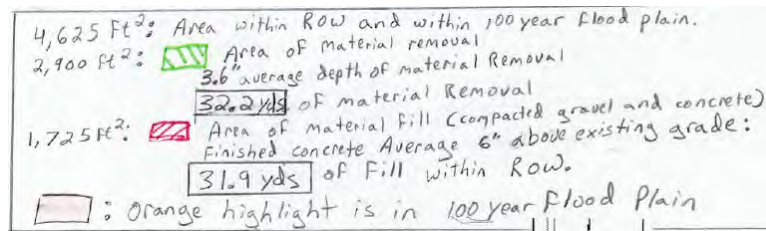 4,625 Ft²: Area within ROW and within 100 year flood plain.
2,900 ft²: Area of material removal
3.6" average depth of material Removal
32.2 yds of material Removal
1,725 Ft²: Area of material fill (compacted gravel and concrete)
Finished concrete Average 6" above existing grade:
31.9 yds of Fill within Row.
: Orange highlight is in 100 year Flood Plain